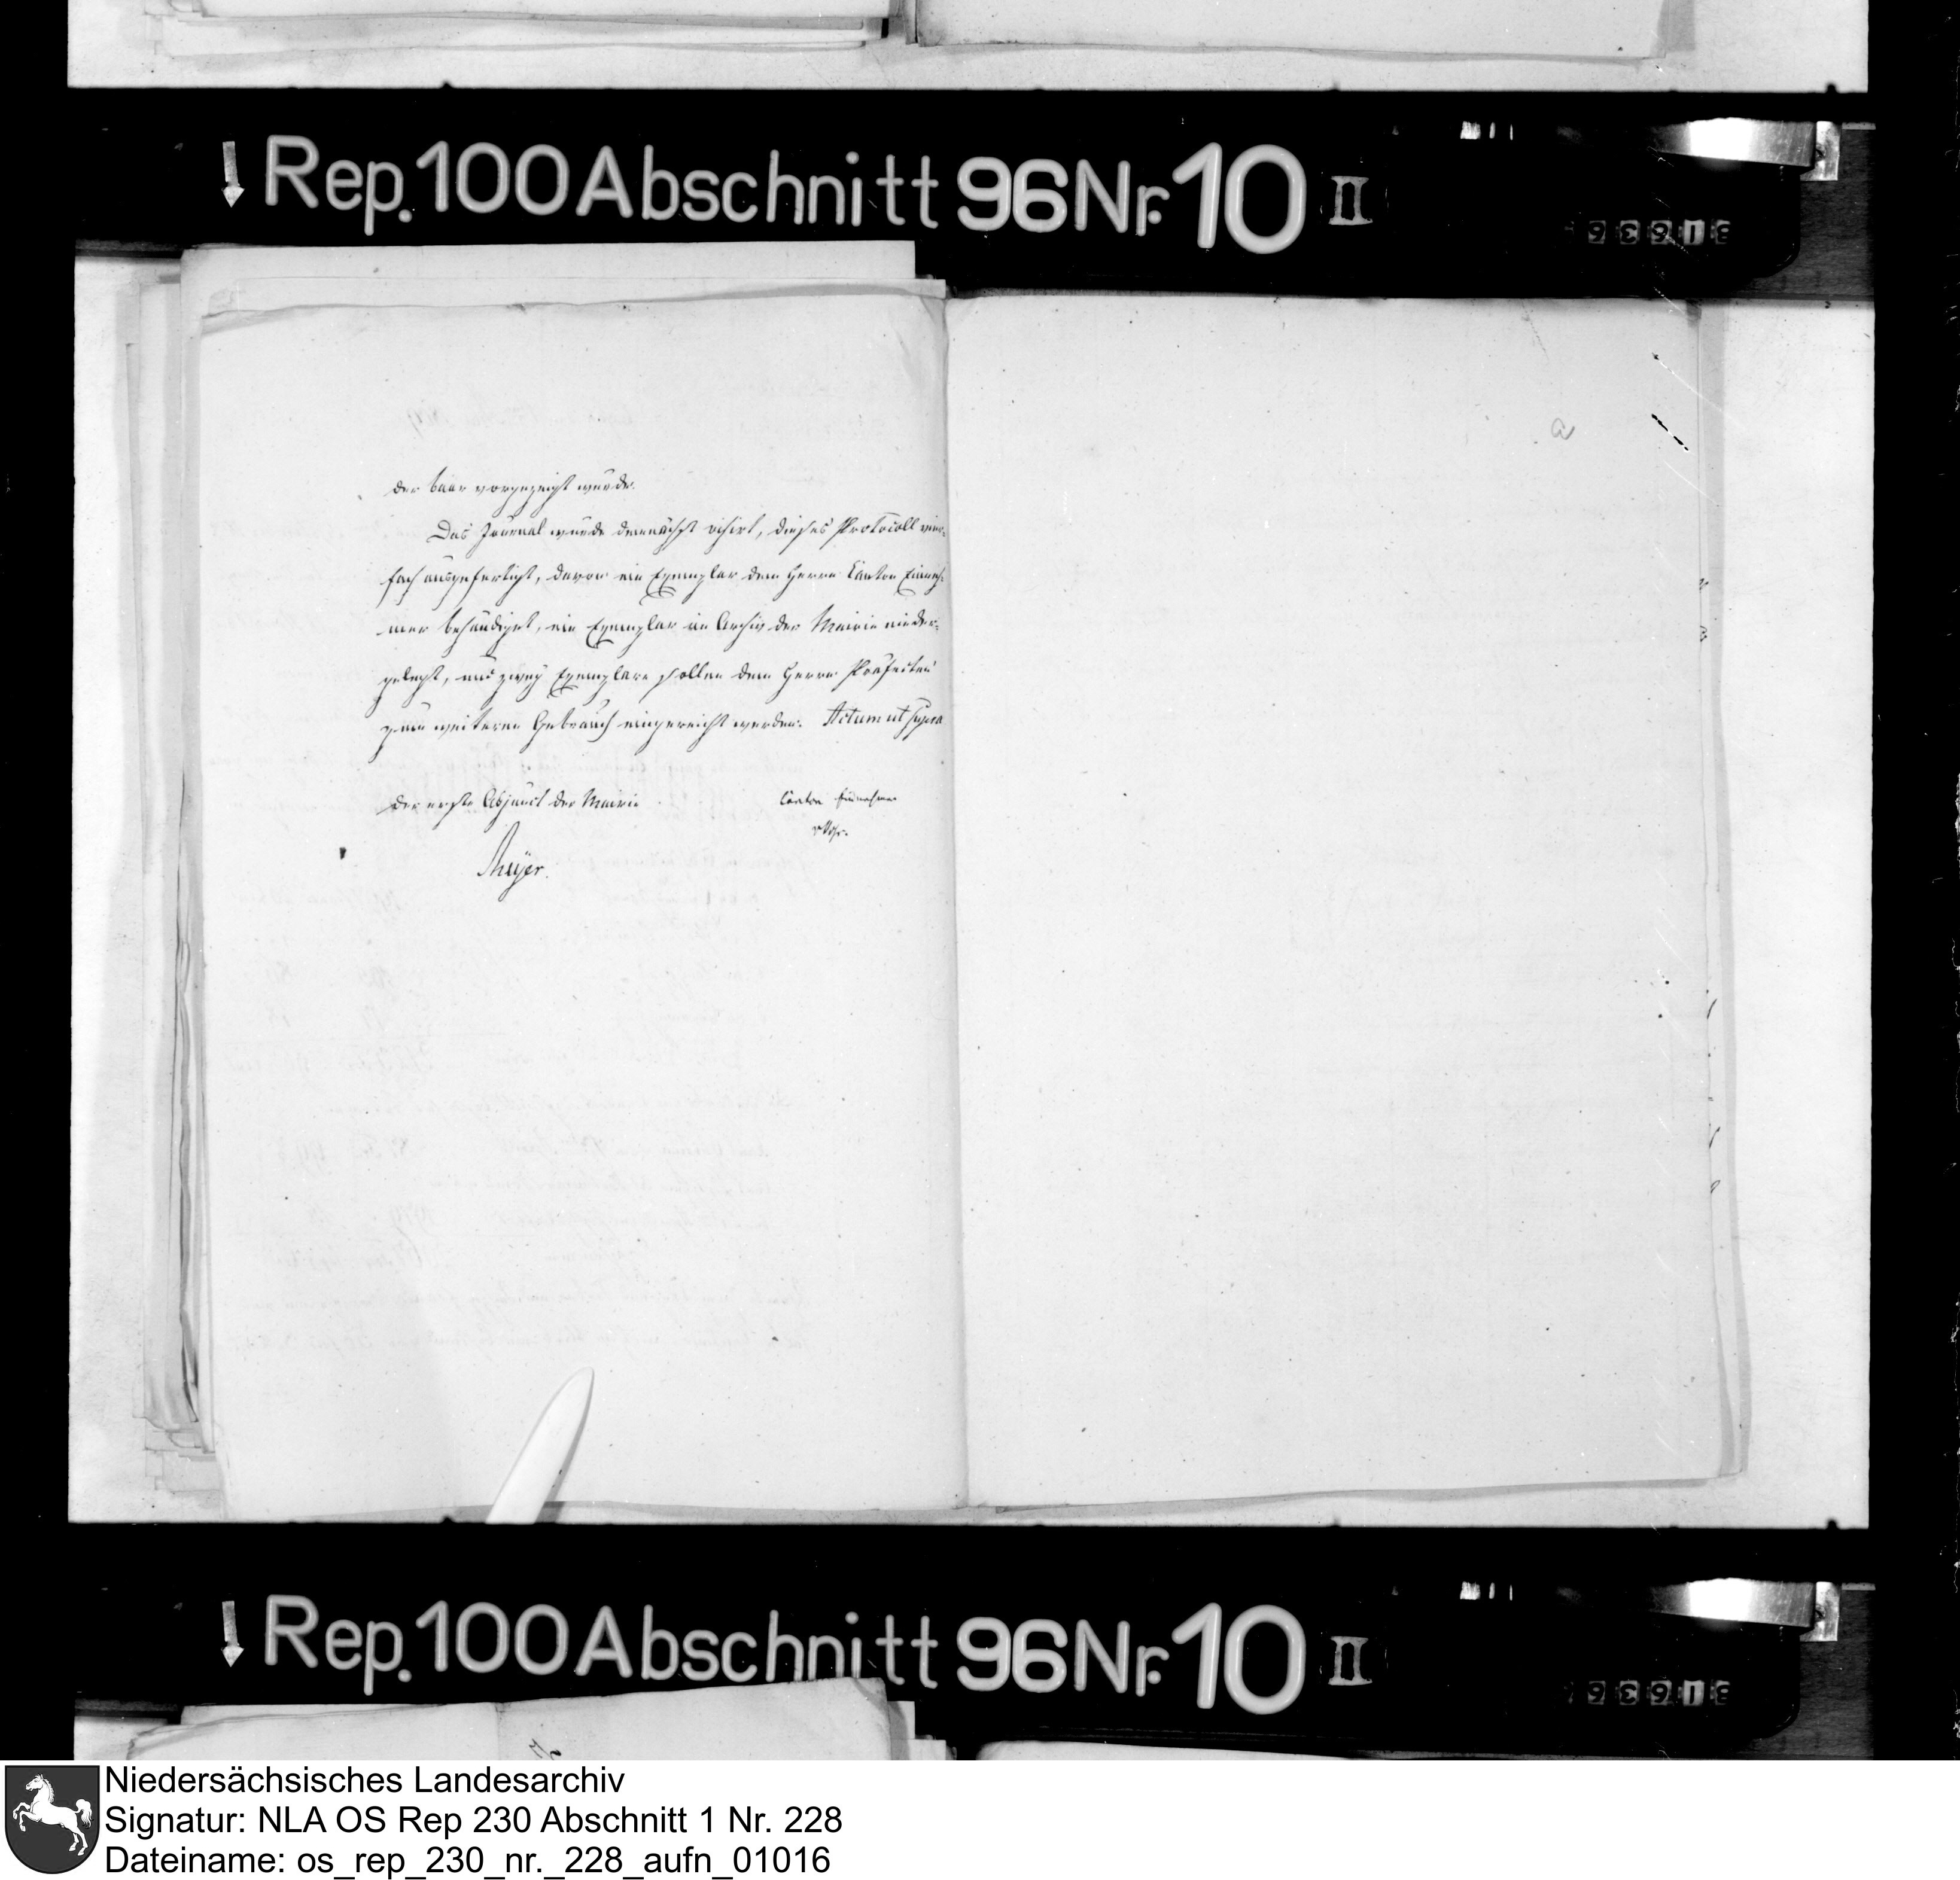 Rep. 100 Abschnitt 96 Nr. 10 II
31636
der baar vorgezeigt wurde.
Das Journal wurde demnächst visirt, dieses Protocoll vier-
fach ausgefertigt, davon ein Exemplar dem Herrn Canton Einneh-
mer behändiget, ein Exemplar im Archiv der Mairie nieder-
gelegt, und zwey Exemplare sollen dem Herrn Präfecten
zum weiteren Gebrauch eingereicht werden. Actum ut supra
der erste Adjunct der Mairie
Meyer.
Canton Einnehmer
Rep. 100 Abschnitt 96 Nr. 10 II
31636
Niedersächsisches Landesarchiv
Signatur: NLA OS Rep 230 Abschnitt 1 Nr. 228
Dateiname: os_rep_230_nr._228_aufn_01016